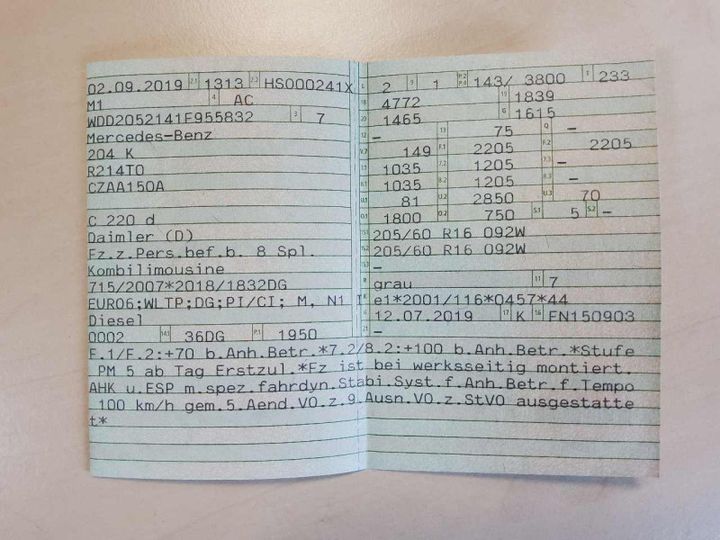 02.09.2019 2.1 1313 2.2 HS000241X
M1 4 AC
WDD2052141F955832 3 7
Mercedes-Benz
204 K
R214T0
CZAA150A
C 220 d
Daimler (D)
Fz.z.Pers.bef.b. 8 Spl.
Kombilimousine
715/2007*2018/1832DG
EURO6;WLTP;DG;PI/CI; M, N1 I
Diesel
0002 14.1 36DG P.1 1950
2 9 1 P.2 P.4 143/ 3800 T 233
18 4772 19 1839
20 1465 G 1615
12 – 13 75 Q –
V.7 149 F.1 2205 F.2 2205
7.1 1035 7.2 1205 7.3 –
8.1 1035 8.2 1205 8.3 –
U.1 81 U.2 2850 U.3 70
O.1 1800 O.2 750 S.1 5 S.2 –
15.1 205/60 R16 092W
15.2 205/60 R16 092W
15.3 –
R grau 11 7
K e1*2001/116*0457*44
6 12.07.2019 17 K 16 FN150903
21 –
F.1/F.2:+70 b.Anh.Betr.*7.2/8.2:+100 b.Anh.Betr.*Stufe
PM 5 ab Tag Erstzul.*Fz ist bei werksseitig montiert.
AHK u.ESP m.spez.fahrdyn.Stabi.Syst.f.Anh.Betr.f.Tempo
100 km/h gem.5.Aend.VO.z.9.Ausn.VO.z.StVO ausgestatte
t*